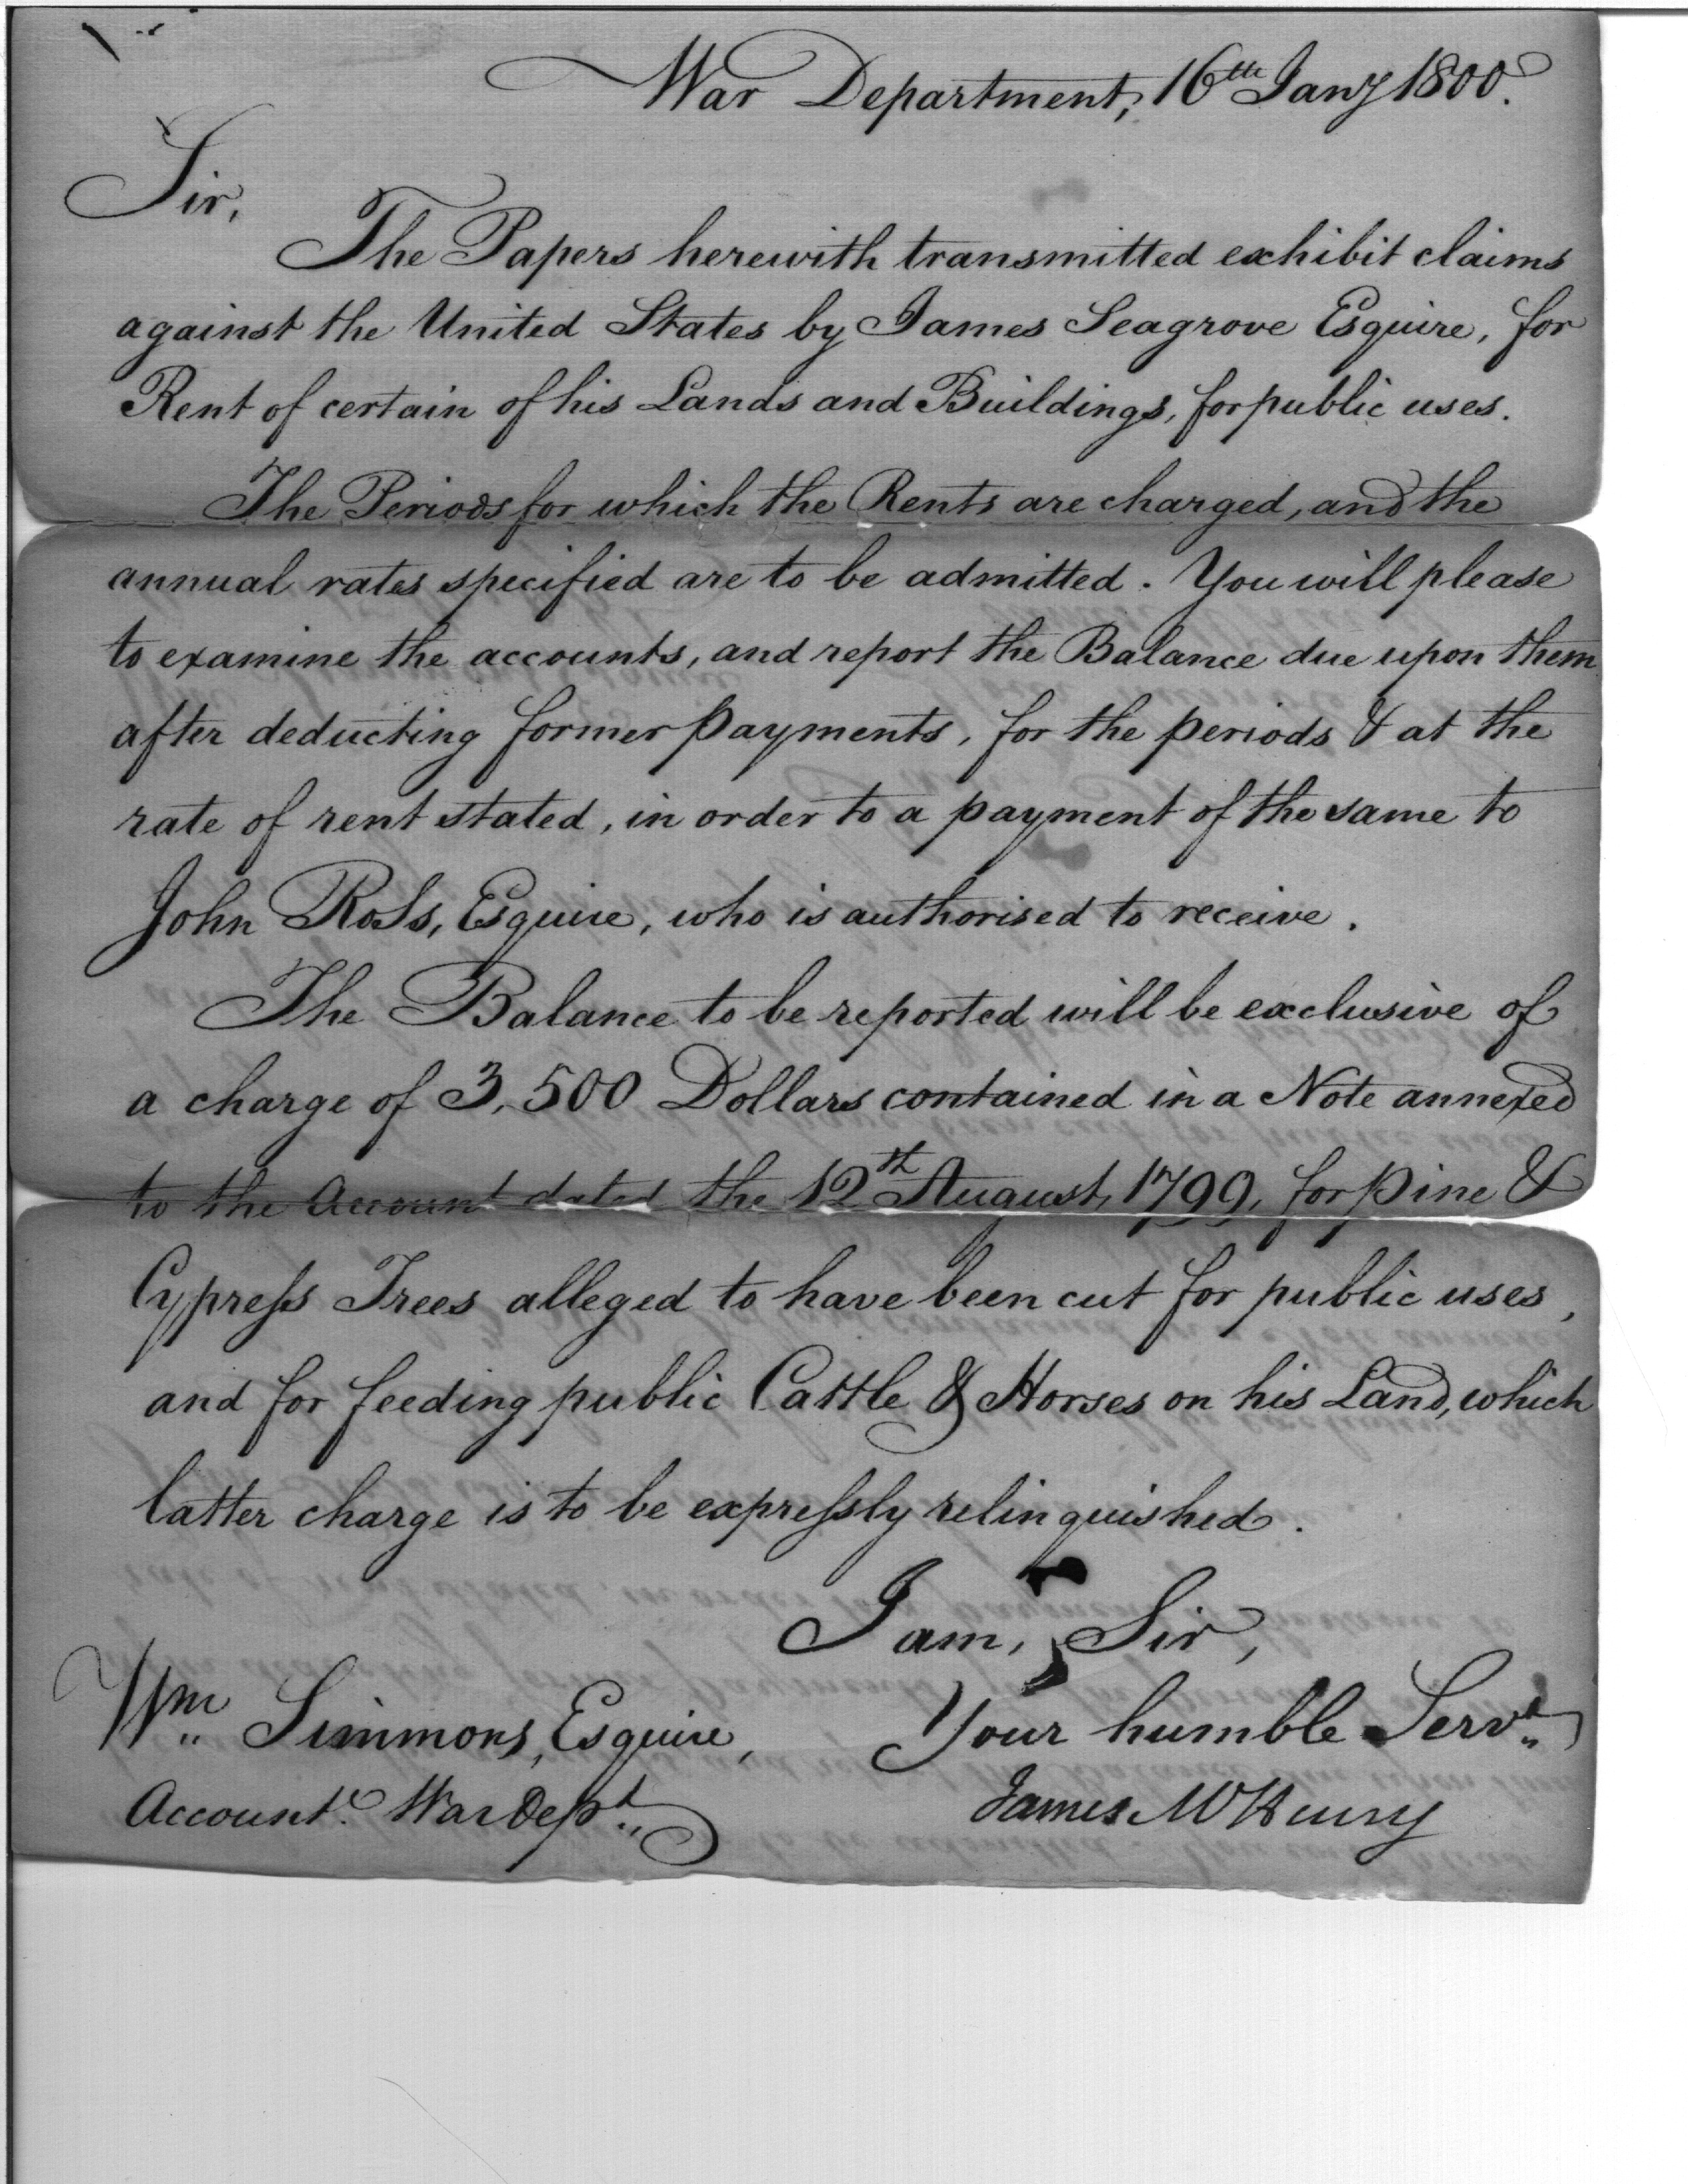 War Department, 16th Jany 1800.
Sir,
The Papers herewith transmitted exhibit claims
against the United States by James Seagrove Esquire, for
Rent of certain of his Lands and Buildings, for public uses.
The Periods for which the Rents are charged, and the
annual rates specified are to be admitted. You will please
to examine the accounts, and report the Balance due upon them
after deducting former payments, for the periods & at the
rate of rent stated, in order to a payment of the same to
John Ross, Esquire, who is authorised to receive.
The Balance to be reported will be exclusive of
a charge of 3,500 Dollars contained in a Note annexed
to the Account dated the 12th August, 1799, for pine &
Cypress Trees alleged to have been cut for public uses,
and for feeding public Cattle & Horses on his Land, which
latter charge is to be expressly relinquished.
I am, Sir,
Your humble Servt
James McHenry
Wm Simmons, Esquire,
Accountt War Dept